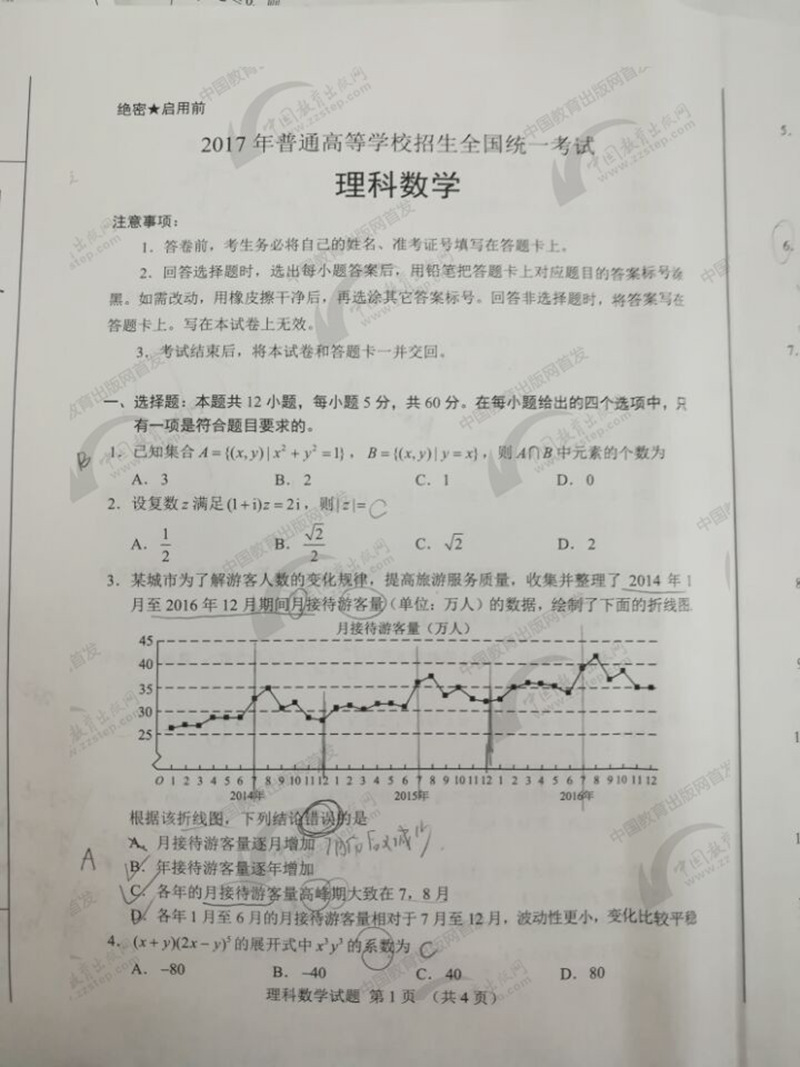 绝密★启用前
2017 年普通高等学校招生全国统一考试
理科数学
注意事项：
1．答卷前，考生务必将自己的姓名、准考证号填写在答题卡上。
2．回答选择题时，选出每小题答案后，用铅笔把答题卡上对应题目的答案标号涂
黑。如需改动，用橡皮擦干净后，再选涂其它答案标号。回答非选择题时，将答案写在
答题卡上。写在本试卷上无效。
3．考试结束后，将本试卷和答题卡一并交回。
一、选择题：本题共 12 小题，每小题 5 分，共 60 分。在每小题给出的四个选项中，只
有一项是符合题目要求的。
B 1．已知集合 A={(x,y)|x²+y²=1}，B={(x,y)|y=x}，则 A∩B 中元素的个数为
A．3 B．2 C．1 D．0
2．设复数 z 满足(1+i)z=2i，则|z|= C
A．1/2 B．√2/2 C．√2 D．2
3．某城市为了解游客人数的变化规律，提高旅游服务质量，收集并整理了 2014 年 1
月至 2016 年 12 月期间月接待游客量（单位：万人）的数据，绘制了下面的折线图
月接待游客量（万人）
45
40
35
30
25
O 1 2 3 4 5 6 7 8 9 10 11 12 1 2 3 4 5 6 7 8 9 10 11 12 1 2 3 4 5 6 7 8 9 10 11 12
2014年 2015年 2016年
根据该折线图，下列结论错误的是
A．月接待游客量逐月增加
A B．年接待游客量逐年增加
C．各年的月接待游客量高峰期大致在 7，8 月
D．各年 1 月至 6 月的月接待游客量相对于 7 月至 12 月，波动性更小，变化比较平稳
4．(x+y)(2x−y)⁵的展开式中 x³y³的系数为 C
A．−80 B．−40 C．40 D．80
理科数学试题 第 1 页 （共 4 页）
5.
6.
7.
中国教育出版网
www.zzstep.com
中国教育出版网首发